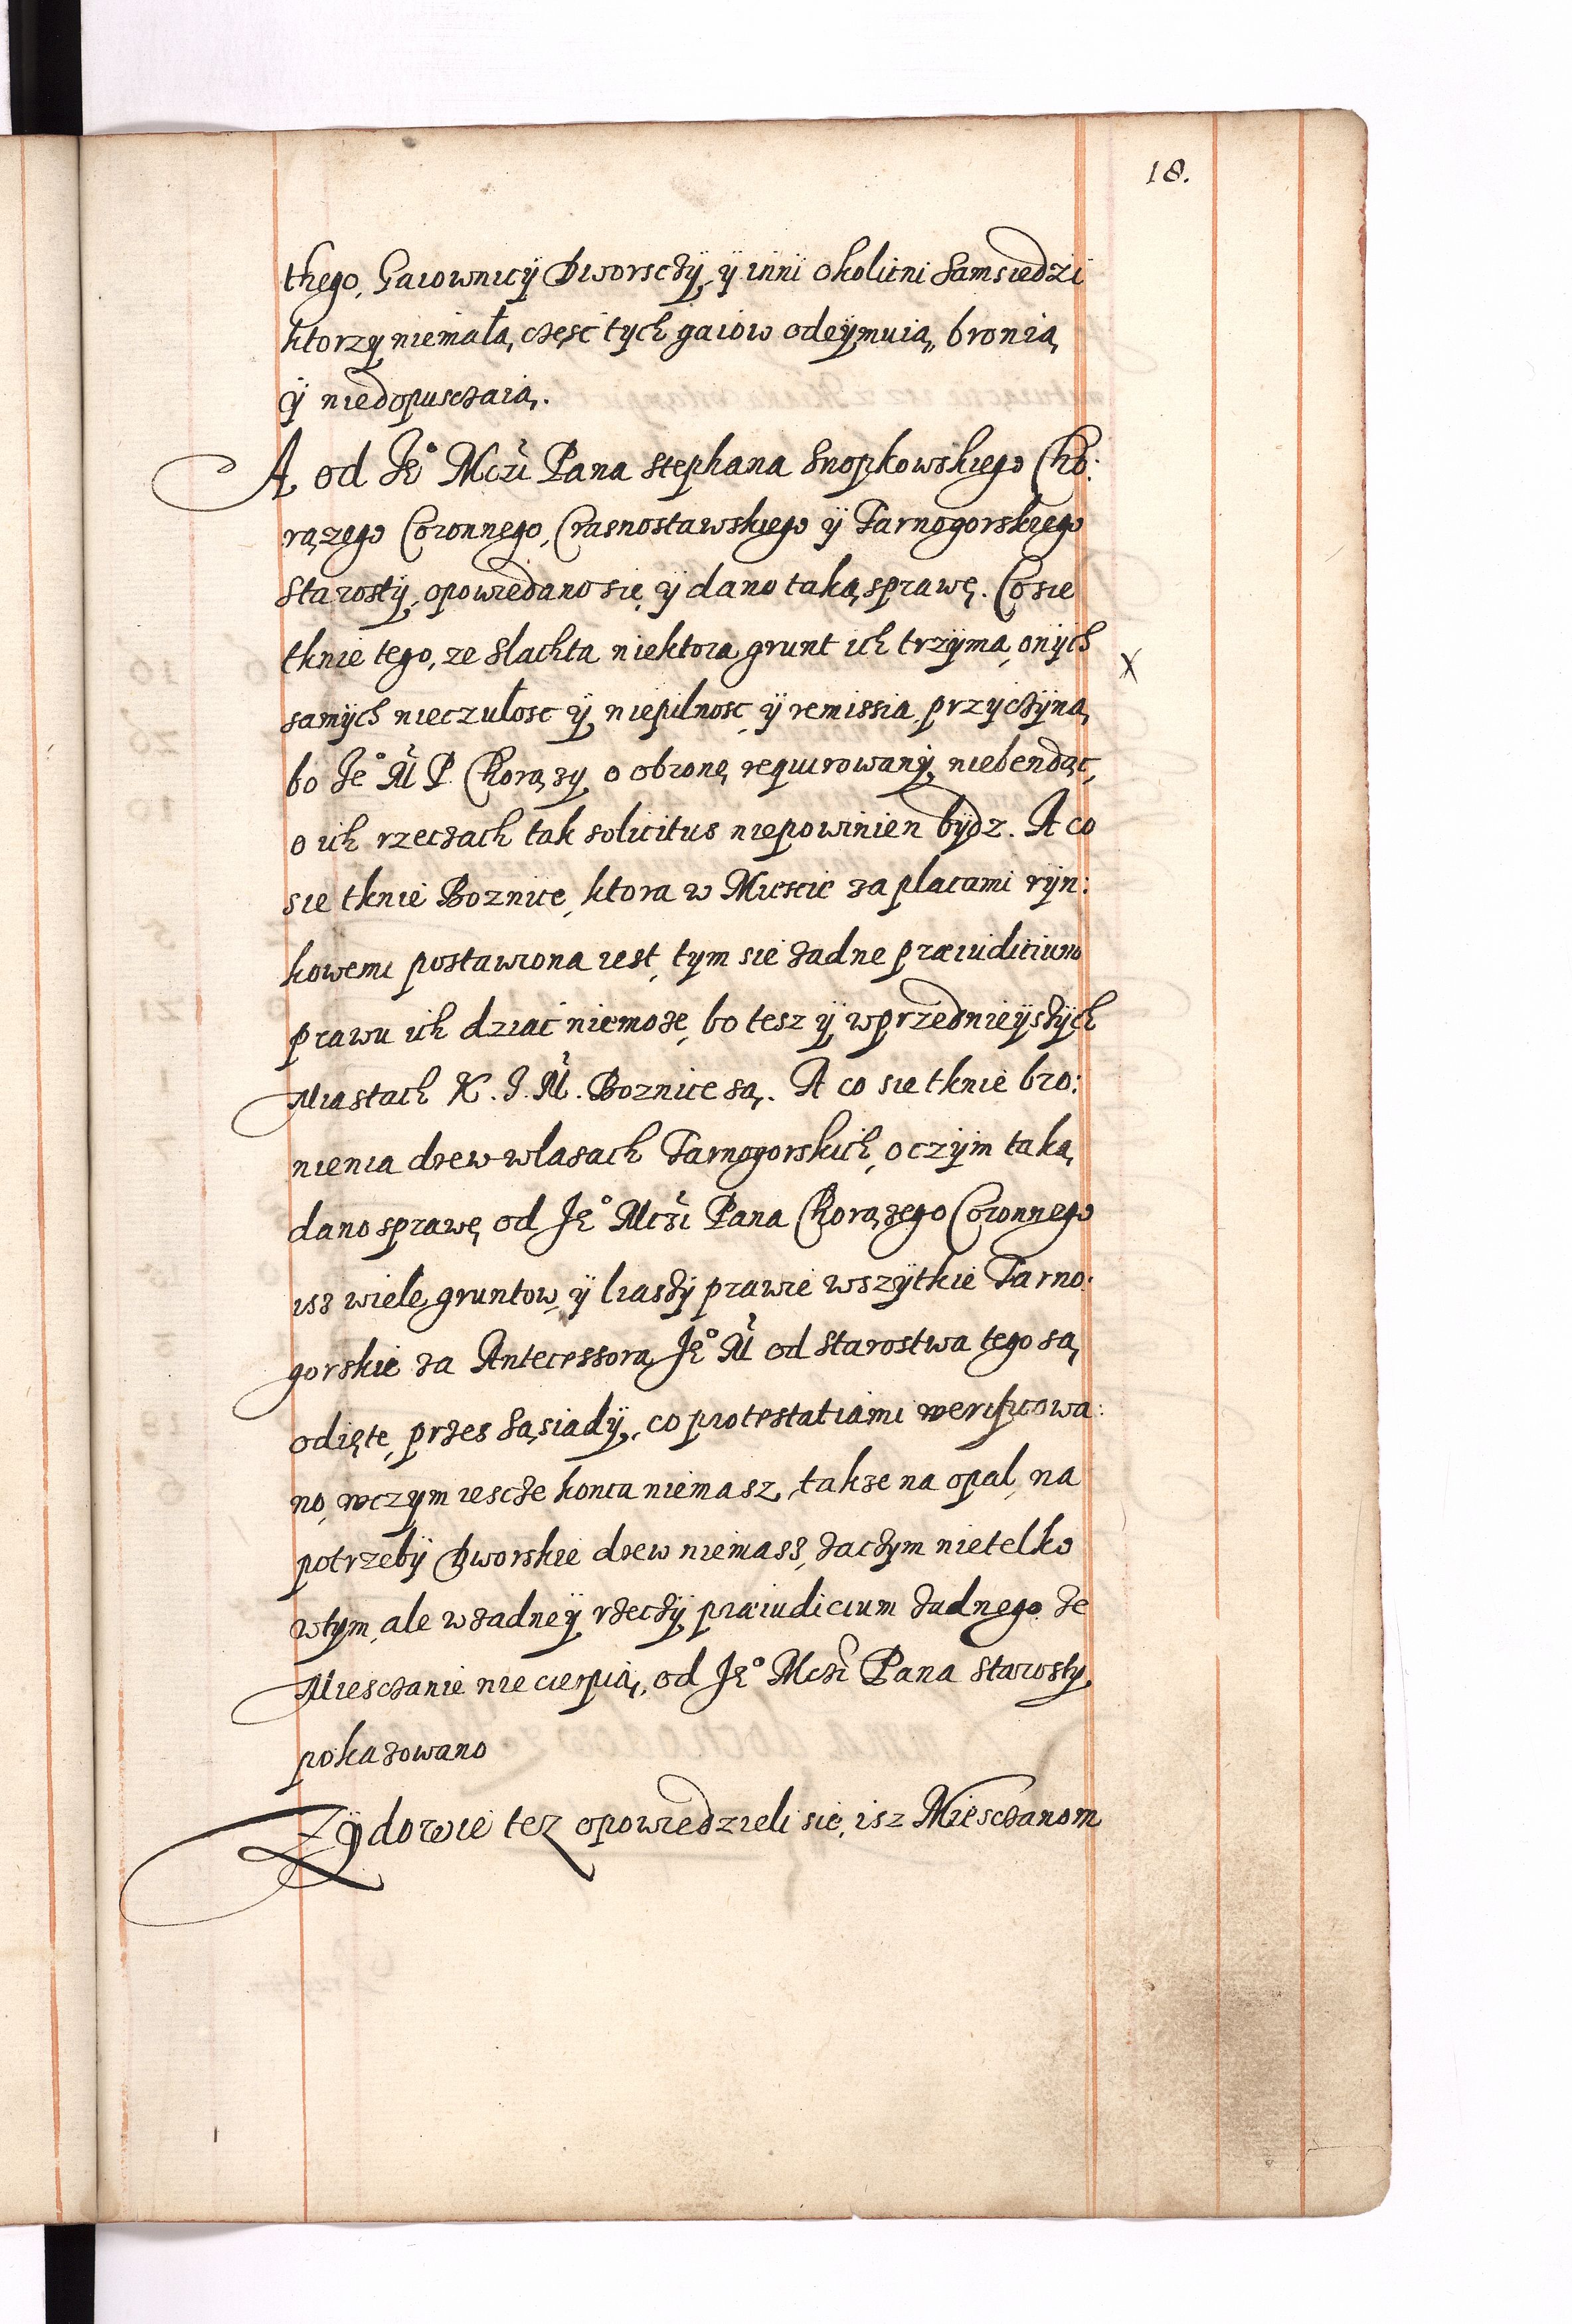 18.
thego, Gaiownicÿ Dworsczÿ, ÿ innÿ okolicni Samsiedzi
ktorzy niemałą częsć tych gaiow odeÿmuią, bronią
ÿ niedopusczaią.
A od Je° Mczi Pana Stephana Snopkowskiego Cho:
rązego Coronnego, Crasnostawskiego ÿ Tarnogorskiego
Starostÿ, opowiedano się, ÿ dano taką sprawę. Co sie
tknie tego, ze slachta niektora grunt ich trzÿma, onÿch
samÿch nieczułosc ÿ niepilnosc, ÿ remissia przyczÿną
bo Je° M P. Chorązy, o obronę requirowanÿ niebendąc,
o ich rzeczach tak solicitus niepowinien bÿdz. A co
sie tknie Boznice, ktora w Miescie za placami rÿn:
kowemi postawiona iest, tym sie zadne præiudicium
prawu ich dziać niemoze, bo tesz ÿ wprzednieÿszÿch
Miastach K. J. M. Boznice są. A co sie tknie bro:
nienia drew wlasach Tarnogorskich, o czÿm taką
dano sprawę od Je° Mczi Pana Chorązego Coronnego
isz wiele gruntow, ÿ liaszÿ prawie wszÿtkie Tarno:
gorskie za Antecessorą Je° M od Starostwa tego są
odięte, przes sąsiadÿ, co protestatiami werificowa:
no, wczym iescze konca niemasz, takze na opał, na
potrzebÿ Dworskie drew niemasz, zaczym nietelko
wtym, ale wzadneÿ rzeczÿ præiudicium zadnego ze
Miesczanie nie cierpią, od Je° Mczi Pana Starosty
pokazowano
Zÿdowie tez opowiedzieli się, isz Miesczanom